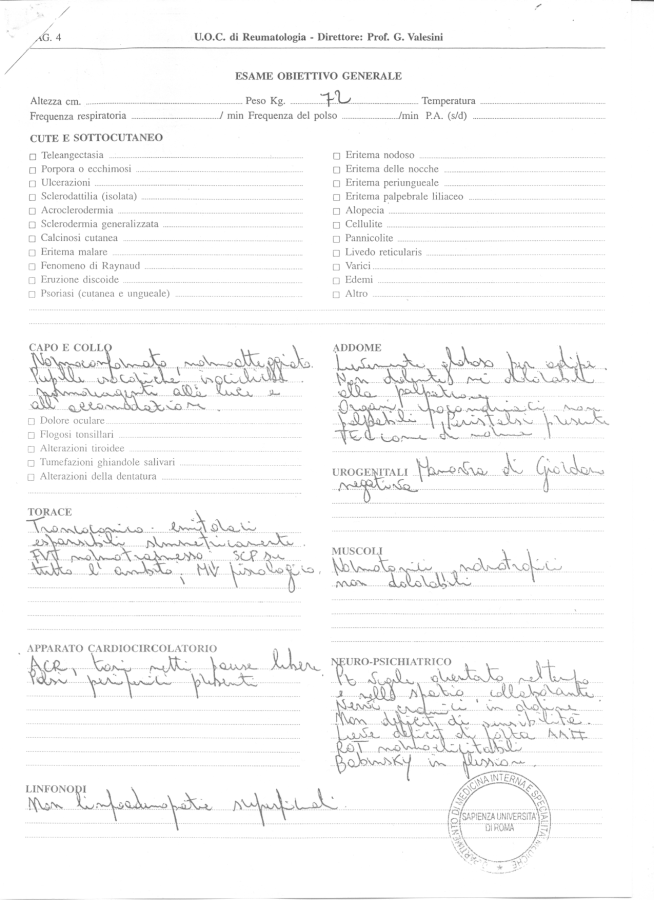 AG. 4
U.O.C. di Reumatologia - Direttore: Prof. G. Valesini
ESAME OBIETTIVO GENERALE
Altezza cm. Peso Kg. 72 Temperatura
Frequenza respiratoria / min Frequenza del polso /min P.A. (s/d)
CUTE E SOTTOCUTANEO
Teleangectasia
Porpora o ecchimosi
Ulcerazioni
Sclerodattilia (isolata)
Acroclerodermia
Sclerodermia generalizzata
Calcinosi cutanea
Eritema malare
Fenomeno di Raynaud
Eruzione discoide
Psoriasi (cutanea e ungueale)
Eritema nodoso
Eritema delle nocche
Eritema periungueale
Eritema palpebrale liliaceo
Alopecia
Cellulite
Pannicolite
Livedo reticularis
Varici
Edemi
Altro
CAPO E COLLO
Normoconformato, normoatteggiato.
Pupille isocoriche isocicliche
normoreagenti alla luce e
all'accomodazione.
Dolore oculare
Flogosi tonsillari
Alterazioni tiroidee
Tumefazioni ghiandole salivari
Alterazioni della dentatura
TORACE
Troncoconico. emitoraci
espansibili simmetricamente.
FVT normotrasmesso. SCP su
tutto l'ambito, MV fisiologico.
APPARATO CARDIOCIRCOLATORIO
ACR, toni netti pause libere.
Polsi periferici presenti
LINFONODI
Non linfoadenopatie superficiali.
ADDOME
globoso per adipe.
Non dolente né dolorabile
alla palpazione
Organi ipocondriaci non
palpabili, peristalsi presente
come di norma.
UROGENITALI Manovra di Giordano
negativa
MUSCOLI
Normotonici normotrofici
non dolorabili
NEURO-PSICHIATRICO
Pt vigile, orientato nel tempo
e nello spazio collaborante.
Nervi cranici in ordine
Non deficit di sensibilità.
Lieve deficit di forza AAII
ROT normoelicitabili
Babinsky in flessione.
DIPARTIMENTO DI MEDICINA INTERNA E SPECIALITÀ MEDICHE
SAPIENZA UNIVERSITA'
DI ROMA